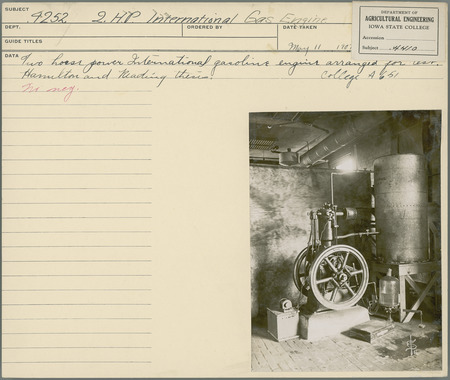 SUBJECT 9252 2 HP International Gas Engine
DEPT. ORDERED BY DATE-TAKEN
GUIDE TITLES May 11
DEPARTMENT OF
AGRICULTURAL ENGINEERING
IOWA STATE COLLEGE
Accession
Subject 4410
DATA Two horse power International gasoline engine arranged for
Hamilton and Reading thesis. College A 651
No neg.